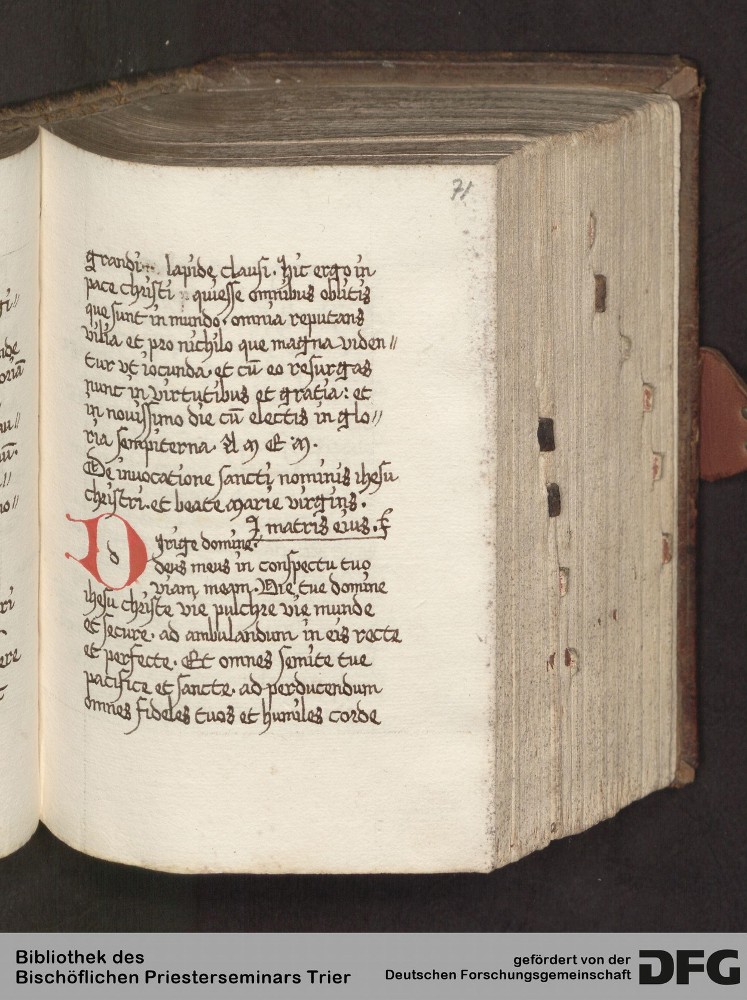 71
grandi lapide clausi. Hic ergo in
pace christi quiesse omnibus oblitis
que sunt in mundo. omnia reputans
vilia et pro nichilo que magna viden//
tur vt iocunda. et cū eo resurgas
nunc in virtutibus et gratia: et
in novissimo die cū electis in glo//
ria sempiterna. A M E M.
De invocatione sancti nominis ihesu
christi. et beate marie virginis.
matris eius.
D d irige domine
deus meus in conspectu tuo
viam meam. Vie tue domine
ihesu christe vie pulchre vie munde
et secure. ad ambulandum in eis recte
et perfecte. Et omnes semite tue
pacifice et sancte. ad perducendum
omnes fideles tuos et humiles corde
Bibliothek des
Bischöflichen Priesterseminars Trier
gefördert von der
Deutschen Forschungsgemeinschaft
DFG